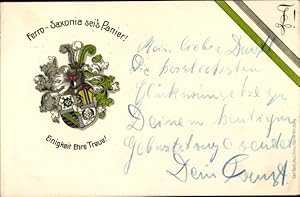 Ferro-Saxonia seis Panier!
Einigkeit Ehre Treue!
Mein lieber
Die herzlichsten
Glückwünsche zu
Deinem heutigen
Geburtstag sendet
Dein